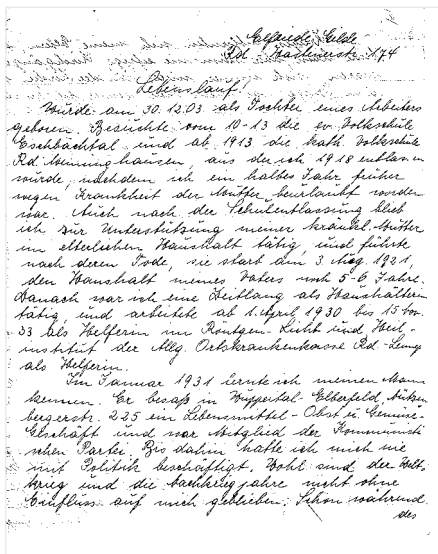 Elfriede Gilde
Rd
174
Lebenslauf!
Wurde am 30.12.03 als Tochter eines Arbeiters
geboren. Besuchte vom 10-13 die ev. Volksschule
Eschbachtal und ab 1913 die kath. Volksschule
Rd. Menninghausen, aus der ich 1918 entlassen
wurde, nachdem ich ein halbes Jahr früher
wegen Krankheit der Mutter beurlaubt worden
war. Auch nach der Schulentlassung blieb
ich zur Unterstützung meiner kränkl. Mutter
im elterlichen Haushalt tätig, und führte
nach deren Tode, sie starb am 3. Aug. 1921,
den Haushalt meines Vaters noch 5-6 Jahre.
Danach war ich eine Zeitlang als Haushälterin
tätig und arbeitete ab 1. April 1930 bis 15 Nov.
33 als Helferin im Röntgen-Licht und Heil-
institut der Allg. Ortskrankenkasse Rd-Lennep
als Helferin.
Im Januar 1931 lernte ich meinen Mann
kennen. Er besaß in Wuppertal-Elberfeld, Nützen
bergerstr. 225 ein Lebensmittel-Obst u. Gemüse-
Geschäft und war Mitglied der Kommunisti
schen Partei. Bis dahin hatte ich mich nie
mit Politik beschäftigt. Wohl sind der Welt-
krieg und die Nachkriegjahre nicht ohne
Einfluss auf mich geblieben. Schon während
des